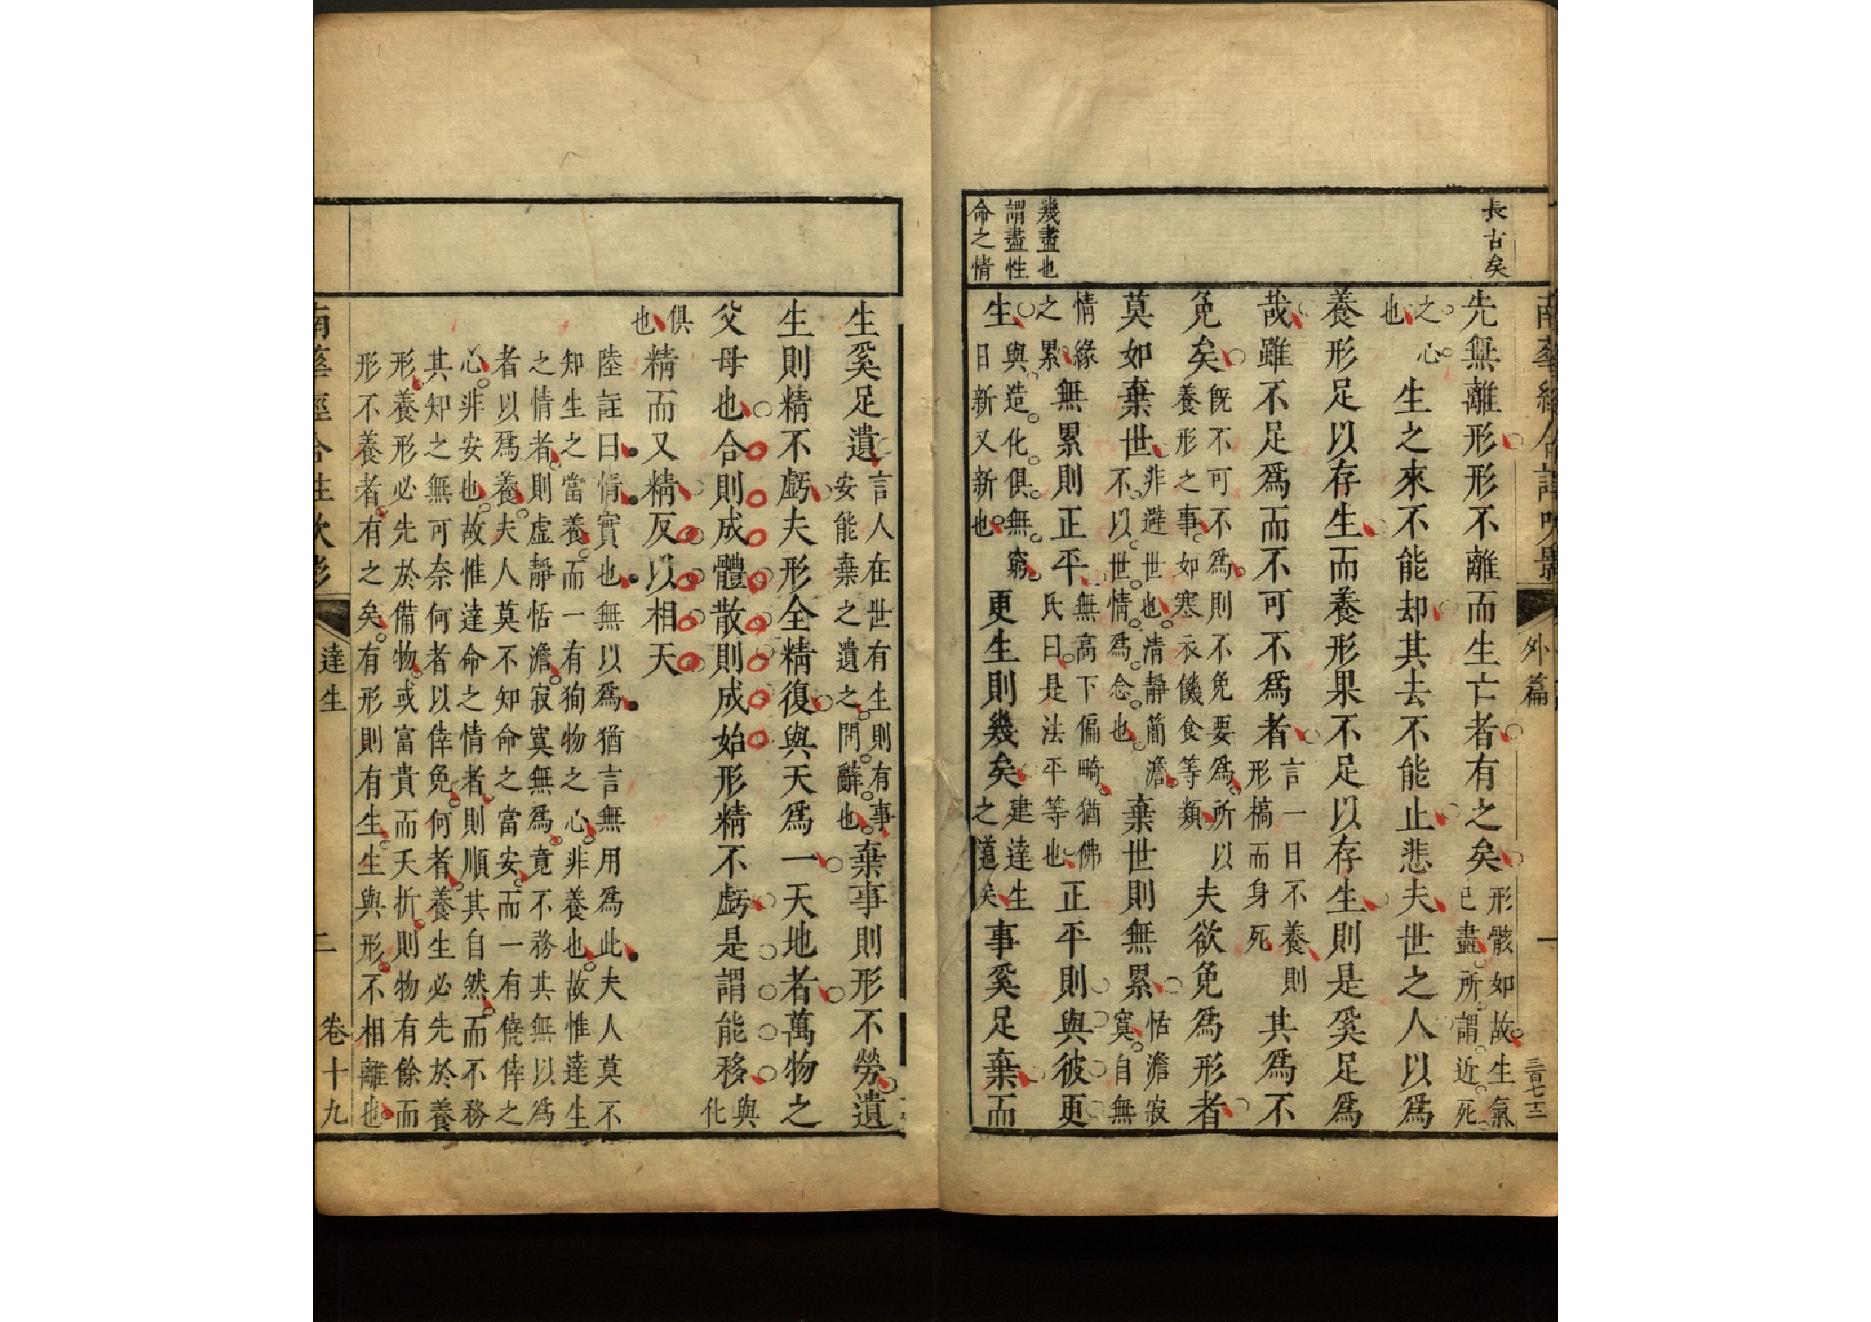 長古矣
幾盡也
謂盡性
命之情
先無離形形不離而生亡者有之矣形骸如故生氣已盡所謂近死
之心也生之來不能却其去不能止悲夫世之人以爲
養形足以存生而養形果不足以存生則是奚足爲
哉雖不足爲而不可不爲者言一日不養則形槁而身死其爲不
免矣既不可不爲則不免要爲所以養形之事如寒衣饑食等類夫欲免爲形者
莫如棄世非避世也清靜簡澹不以世情爲念也棄世則無累恬澹寂寞自無
情緣之累無累則正平無高下偏畸猶佛氏曰是法平等也正平則與彼更
生與造化俱無窮日新又新也更生則幾矣建達生之道矣事奚足棄而
外篇
一
三百七十三
生奚足遺言人在世有生則有事安能棄之遺之問辭也棄事則形不勞遺
生則精不虧夫形全精復與天爲一天地者萬物之
父母也合則成體散則成始形精不虧是謂能移與化
俱也精而又精反以相天
陸註曰情實也無以爲猶言無用爲此夫人莫不
知生之當養而一有狥物之心非養也故惟達生
之情者則虛靜恬澹寂寞無爲竟不務其無以爲
者以爲養夫人莫不知命之當安而一有僥倖之
心非安也故惟達命之情者則順其自然而不務
其知之無可奈何者以倖免何者養生必先於養
形養形必先於備物或富貴而夭折則物有餘而
形不養者有之矣有形則有生生與形不相離也
達生
二
卷十九